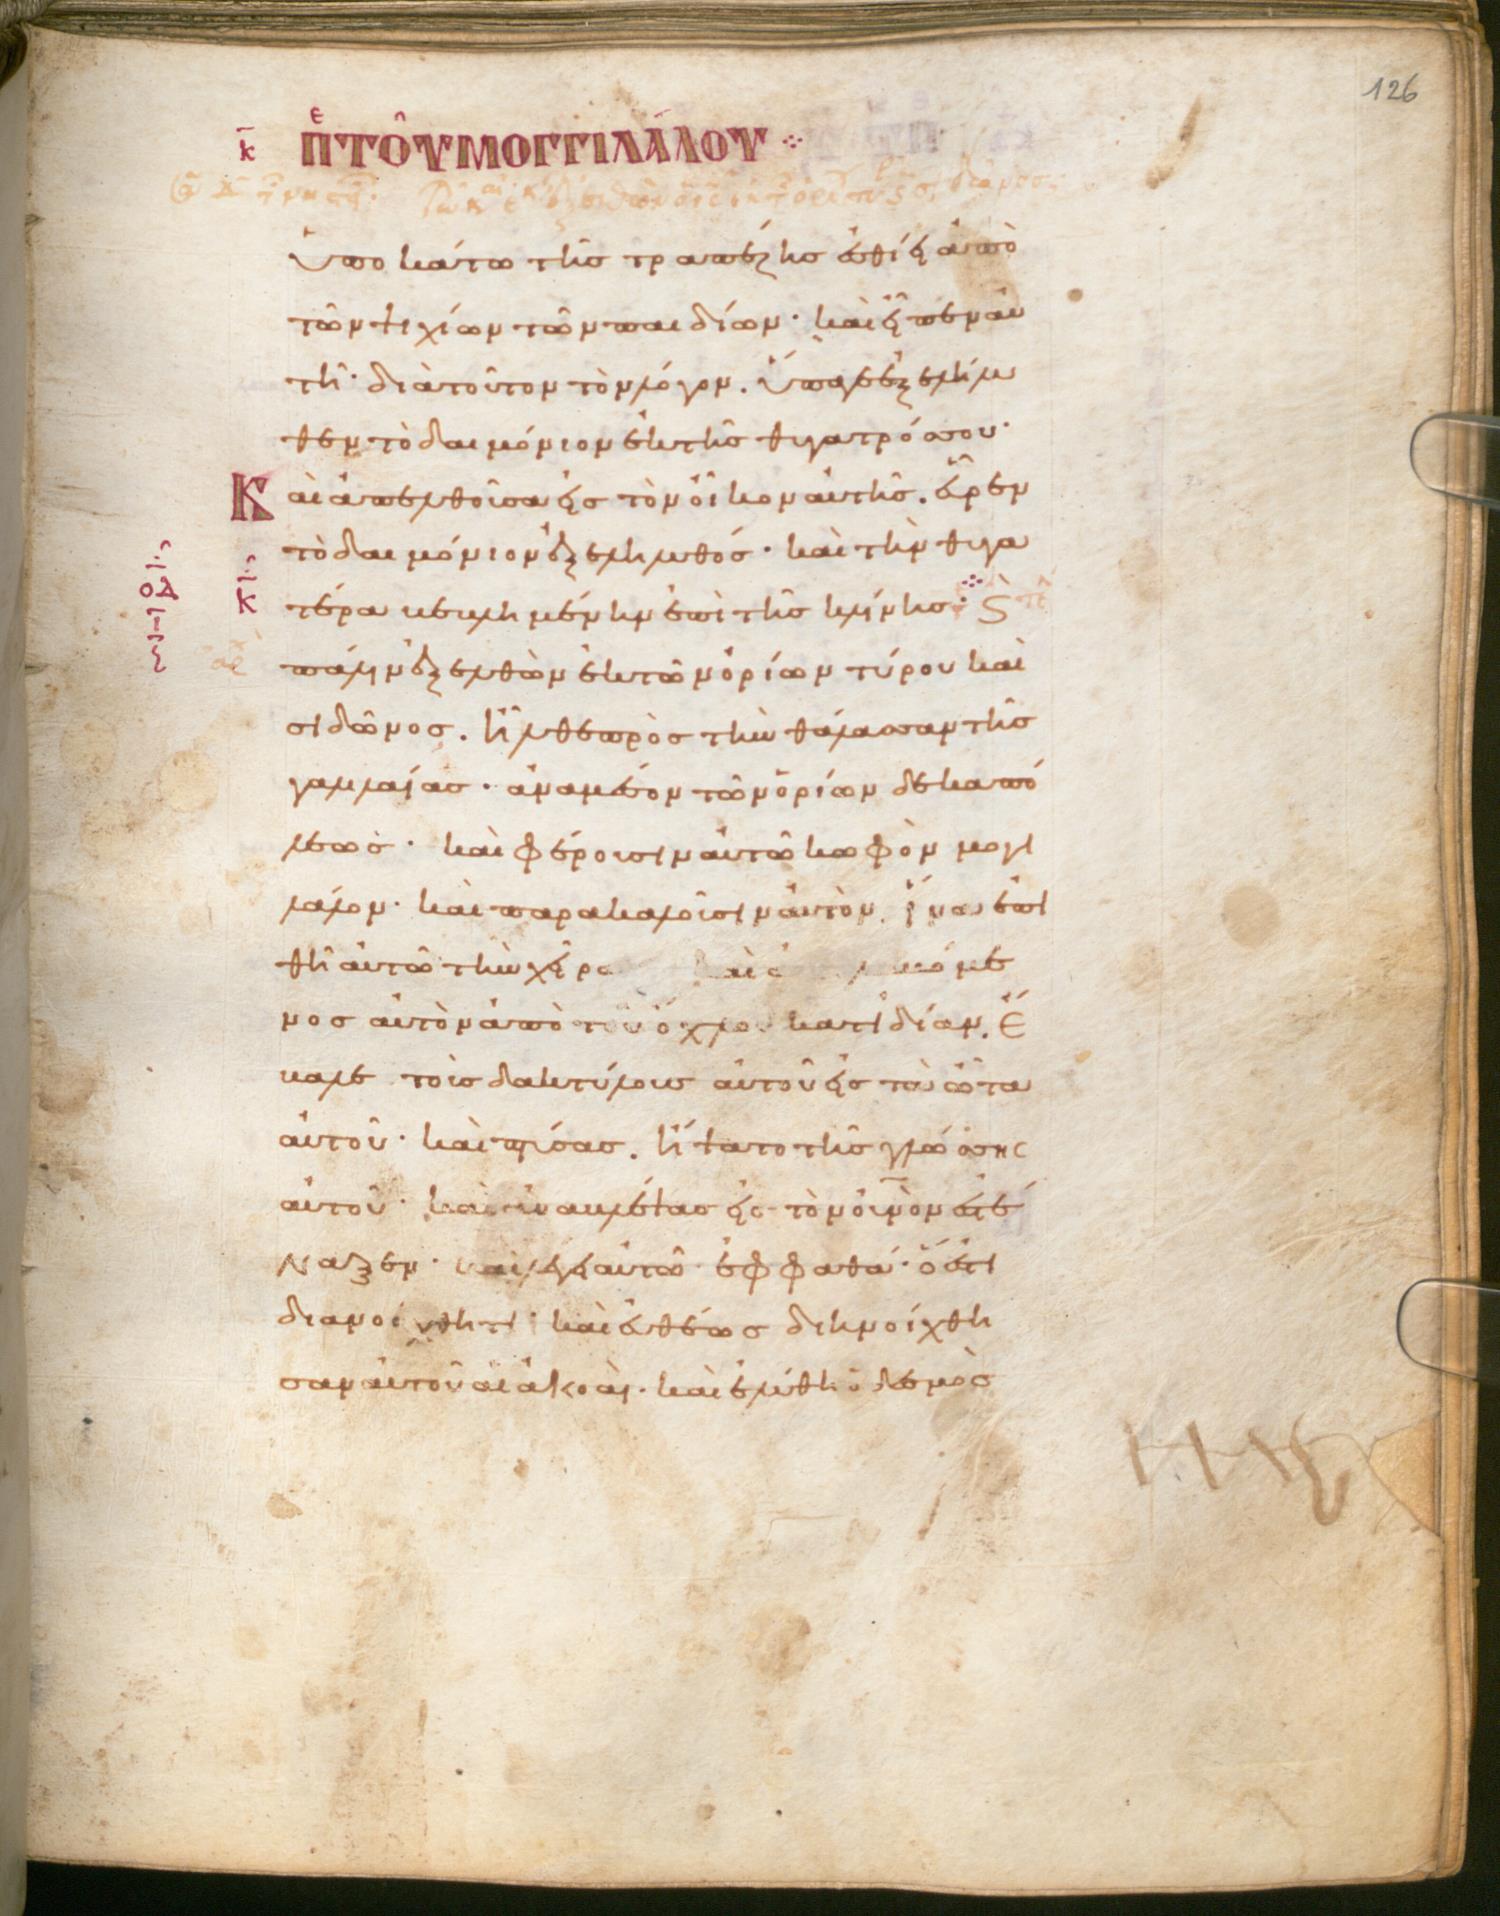 126
κ̅ Πε ΤΟΥ ΜΟΓΓΙΛΆΛΟΥ
ὑποκάτω τῆς τραπέζης ἐσθίει ἀπὸ
τῶν ψιχίων τῶν παιδίων· καὶ εἶπεν αὐ
τῆ· διὰ τοῦτον τὸν λόγον. ὕπαγε ἐξελήλυ
θεν τὸ δαιμόνιον ἐκ τῆς θυγατρός σου·
Καὶ ἀπελθοῦσα εἰς τὸν οἶκον αὐτῆς. εὗρεν
τὸ δαιμόνιον ἐξεληλυθός· καὶ τὴν θυγα
τέρα κειμένην ἐπὶ τῆς κλίνης·
πάλιν ἐξελθὼν ἐκ τῶν ὁρίων τύρου καὶ
σιδῶνος. ἦλθε πρὸς τὴν θάλασσαν τῆς
γαλιλαίας· ἀναμέσον τῶν ὁρίων δεκαπό
λεως· καὶ φέρουσιν αὐτῶ κωφὸν μογι
λάλον· καὶ παρακαλοῦσιν αὐτὸν. ἵνα ἐπι
θῆ αὐτῶ τὴν χεῖρα
νος αὐτὸν ἀπὸ τοῦ ὄχλου κατιδίαν. ἔ
βαλε τοὺς δακτύλους αὐτοῦ εἰς τὰ ὦτα
αὐτοῦ· καὶ πτύσας. ἥψατο τῆς γλώσσης
αὐτοῦ· καὶ ἀναβλέψας εἰς τὸν οὐ̅νο̅ν ἐστέ
ναξεν· καὶ λέγει αὐτῶ· ἐφφαθά· ὅ ἐστι
διανοίχθητι· καὶ εὐθέως διηνοίχθη
σαν αὐτοῦ αἱ ἀκοαὶ· καὶ ἐλύθη ὁ δεσμὸς